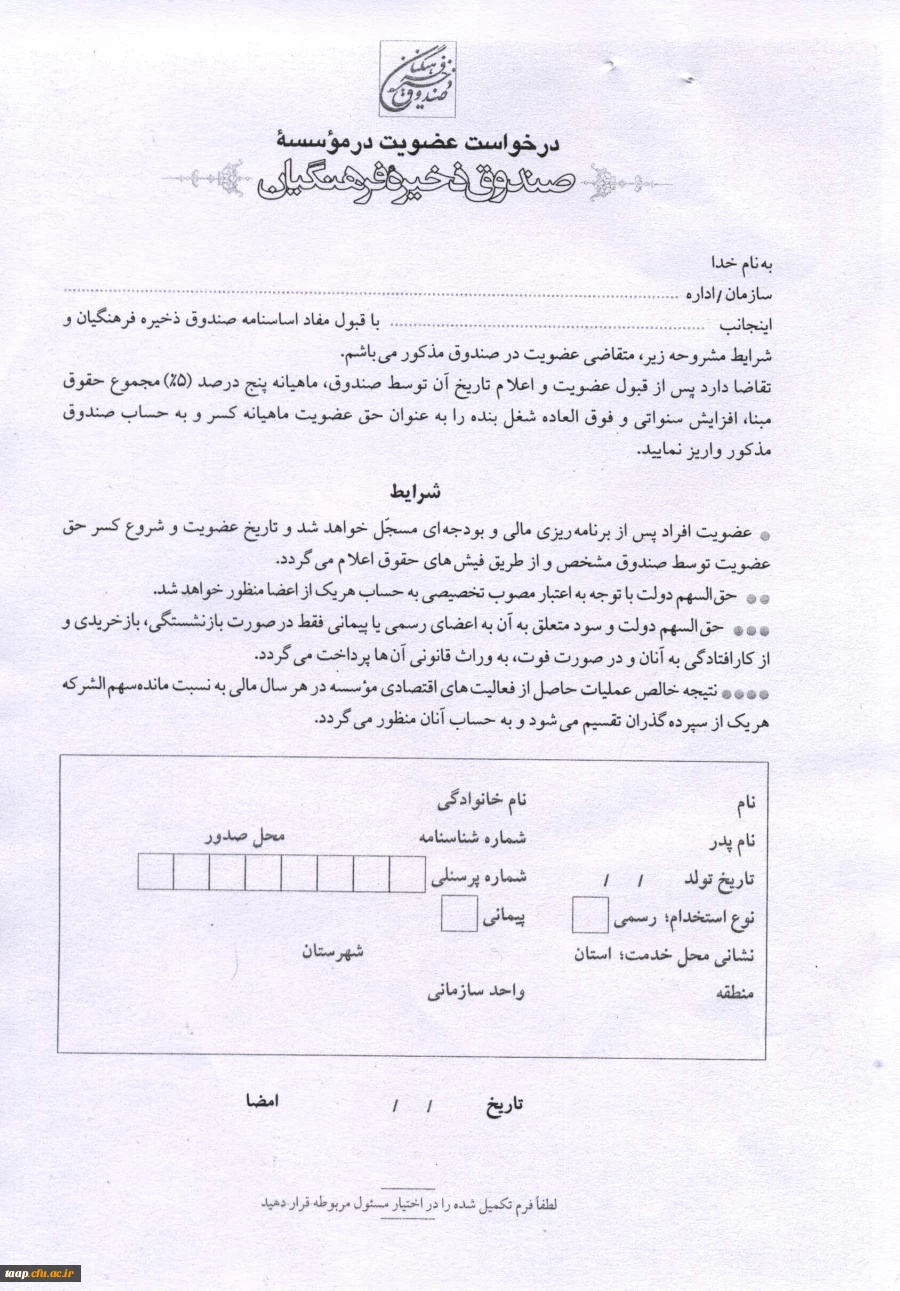 صندوق ذخیره فرهنگیان
درخواست عضویت در مؤسسهٔ
صندوق ذخیرهٔ فرهنگیان
به نام خدا
سازمان/اداره ........................................
اینجانب ........................................ با قبول مفاد اساسنامه صندوق ذخیره فرهنگیان و
شرایط مشروحه زیر، متقاضی عضویت در صندوق مذکور می‌باشم.
تقاضا دارد پس از قبول عضویت و اعلام تاریخ آن توسط صندوق، ماهیانه پنج درصد (۵٪) مجموع حقوق
مبنا، افزایش سنواتی و فوق العاده شغل بنده را به عنوان حق عضویت ماهیانه کسر و به حساب صندوق
مذکور واریز نمایید.
شرایط
● عضویت افراد پس از برنامه‌ریزی مالی و بودجه‌ای مسجّل خواهد شد و تاریخ عضویت و شروع کسر حق
عضویت توسط صندوق مشخص و از طریق فیش‌های حقوق اعلام می‌گردد.
●● حق‌السهم دولت با توجه به اعتبار مصوب تخصیصی به حساب هریک از اعضا منظور خواهد شد.
●●● حق‌السهم دولت و سود متعلق به آن به اعضای رسمی یا پیمانی فقط در صورت بازنشستگی، بازخریدی و
از کارافتادگی به آنان و در صورت فوت، به وراث قانونی آن‌ها پرداخت می‌گردد.
●●●● نتیجه خالص عملیات حاصل از فعالیت‌های اقتصادی مؤسسه در هر سال مالی به نسبت مانده سهم‌الشرکه
هریک از سپرده‌گذران تقسیم می‌شود و به حساب آنان منظور می‌گردد.
نام نام خانوادگی
نام پدر شماره شناسنامه محل صدور
تاریخ تولد / / شماره پرسنلی
نوع استخدام؛ رسمی پیمانی
نشانی محل خدمت؛ استان شهرستان
منطقه واحد سازمانی
تاریخ / / امضا
لطفاً فرم تکمیل شده را در اختیار مسئول مربوطه قرار دهید
taap.cfu.ac.ir